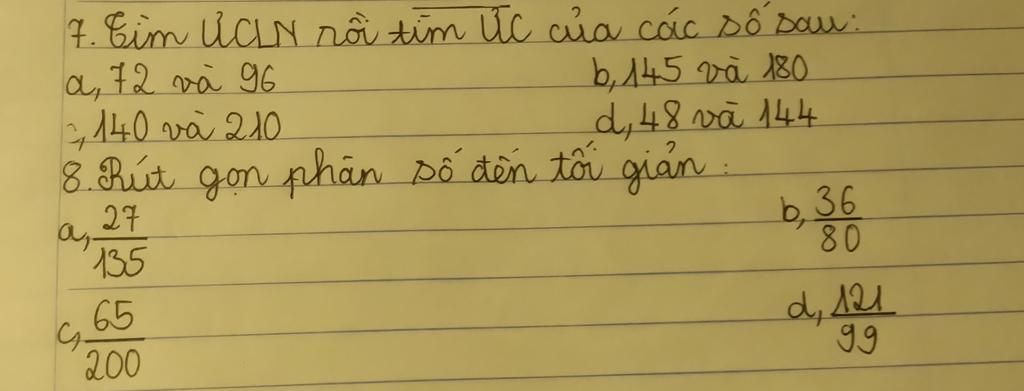 7. Tìm ƯCLN rồi tìm ƯC của các số sau:
a, 72 và 96 b, 145 và 180
c, 140 và 210 d, 48 và 144
8. Rút gọn phân số đến tối giản:
a, 27/135 b, 36/80
c, 65/200 d, 121/99